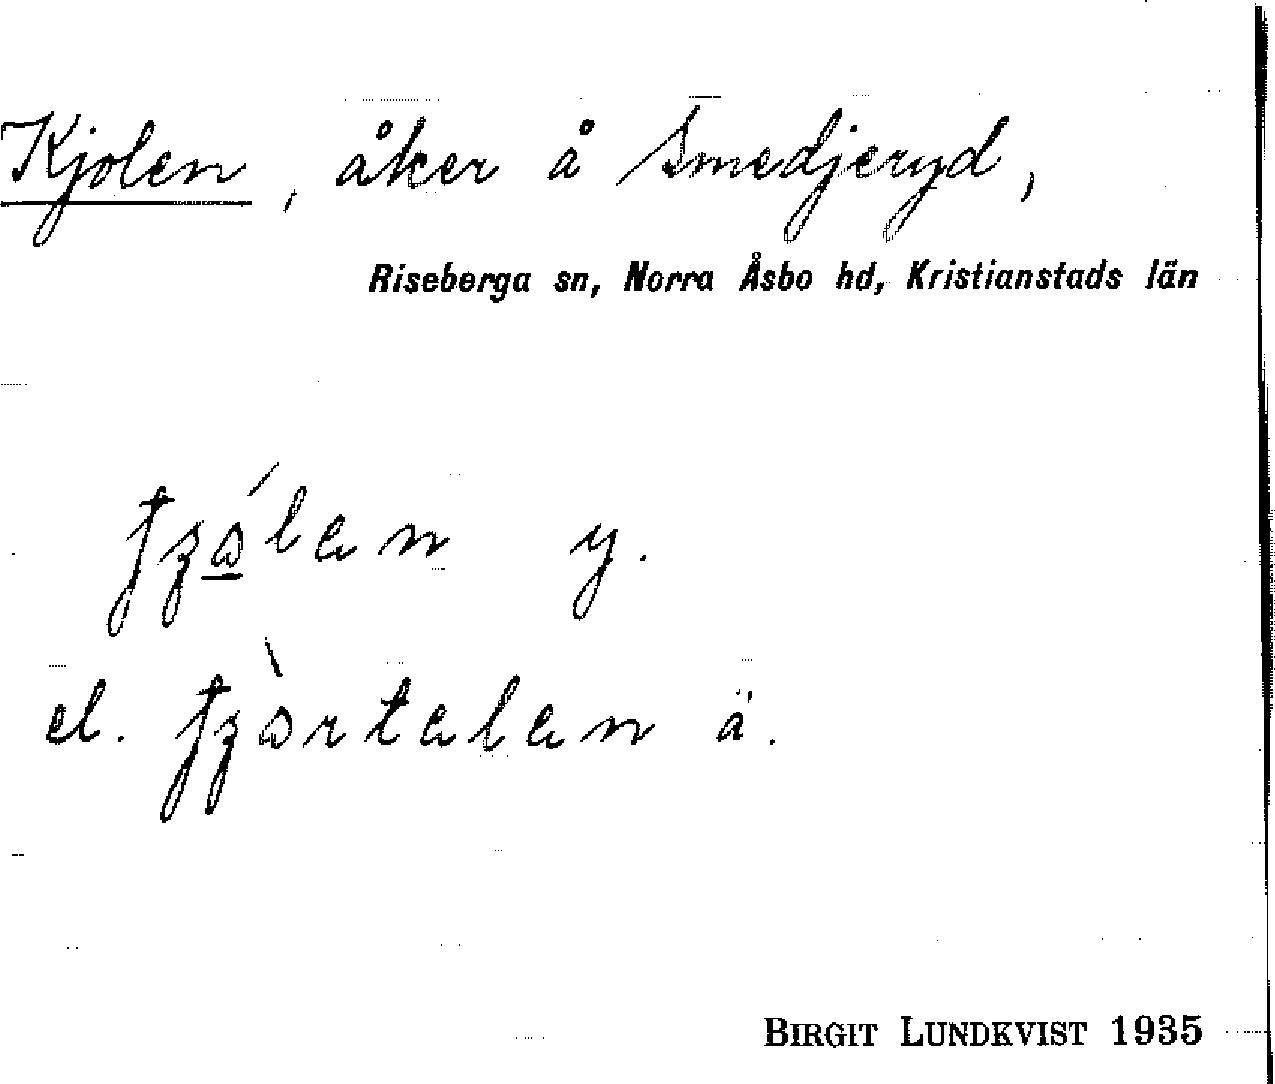 Kjolen, åker å Smedjeryd,
Riseberga sn, Norra Åsbo hd, Kristianstads län
y.
el. ä.
BIRGIT LUNDKVIST 1935